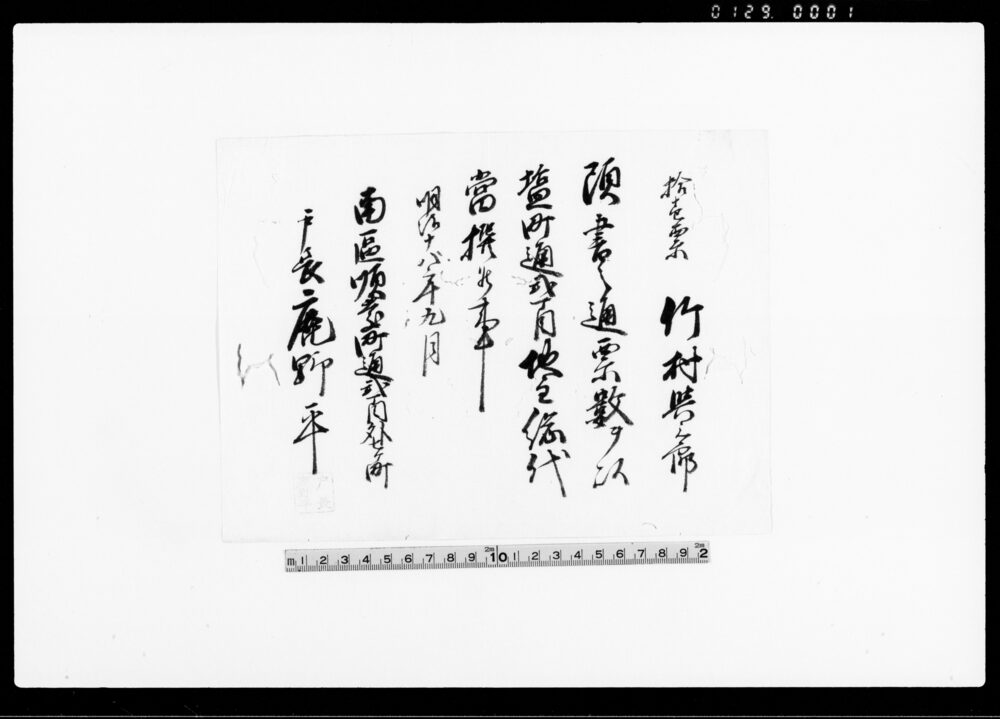 0129 0001
拾壱票 竹村與三郎
頭書之通票数ヲ以
塩町通弐丁目地主総代
當撰候事
明治十八年九月
南區順慶町通弐丁目外七町
戸長 鹿野平
m 1 2 3 4 5 6 7 8 9 10 1 2 3 4 5 6 7 8 9 2